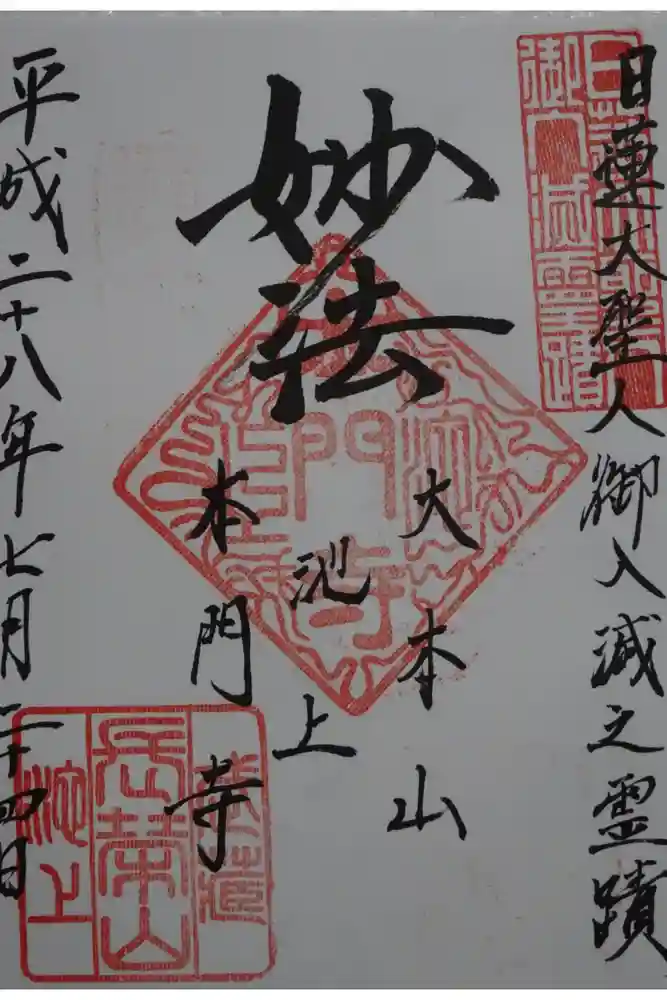 日蓮大聖人御入滅之霊蹟
妙法
大本山
池上
本門寺
平成二十八年七月二十四日
御入滅霊蹟
武蔵
長榮山
池上